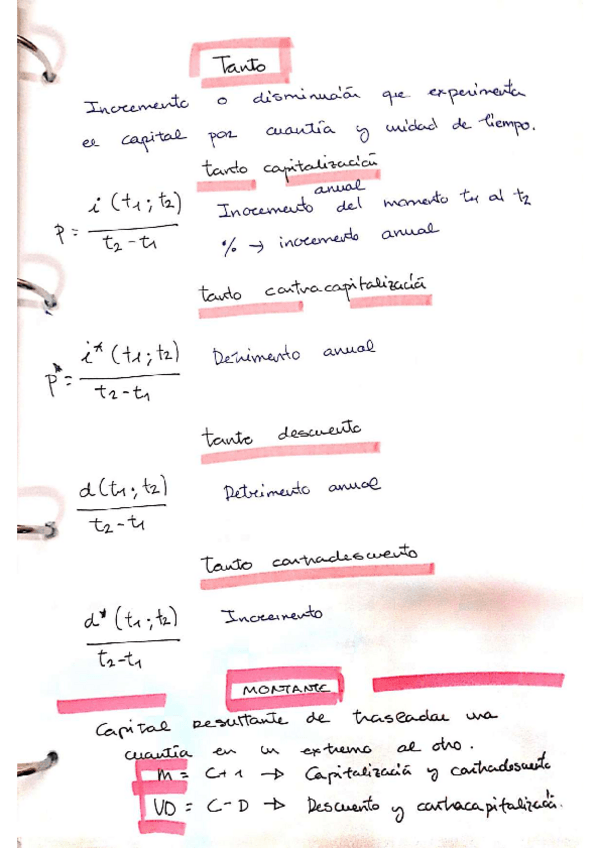 Tanto
Incremento o disminución que experimenta
el capital por cuantía y unidad de tiempo.
tanto capitalización
anual
p = i (t1; t2) / t2 - t1
Incremento del momento t1 al t2
% → incremento anual
tanto contracapitalización
p* = i* (t1; t2) / t2 - t1
Detrimento anual
tanto descuento
d (t1; t2) / t2 - t1
Detrimento anual
tanto contradescuento
d* (t1; t2) / t2 - t1
Incremento
MONTANTE
Capital resultante de trasladar una
cuantía en un extremo al otro.
M = C + 1 → Capitalización y contradescuento
VD = C - D → Descuento y contracapitalización.